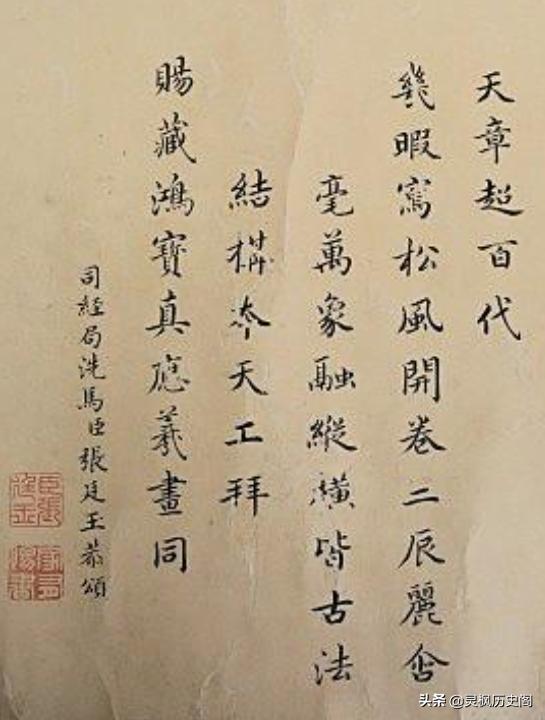 天章超百代
幾暇寫松風開卷二辰麗含
毫萬象融縱橫皆古法
結構夲天工拜
賜藏鴻寶真應羲畫同
司經局洗馬臣張廷玉恭頌
头条 @灵枫历史阁